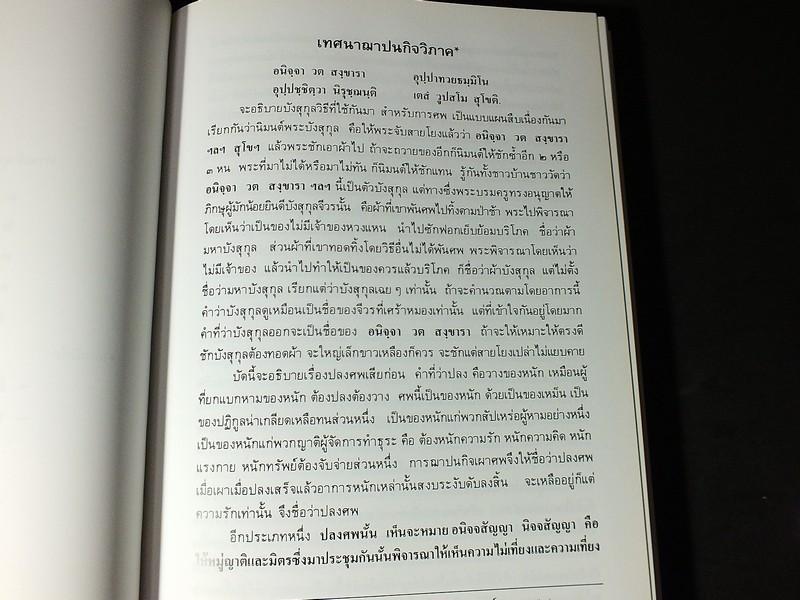 เทศนาฌาปนกิจวิภาค*
อนิจฺจา วต สงฺขารา อุปฺปาทวยธมฺมิโน
อุปฺปชฺชิตฺวา นิรุชฺฌนฺติ เตสํ วูปสโม สุโขติ.
จะอธิบายบังสุกุลวิธีที่ใช้กันมา สำหรับการศพ เป็นแบบแผนสืบเนื่องกันมา
เรียกกันว่านิมนต์พระบังสุกุล คือให้พระจับสายโยงแล้วว่า อนิจฺจา วต สงฺขารา
ฯลฯ สุโขฯ แล้วพระชักเอาผ้าไป ถ้าจะถวายของอีกก็นิมนต์ให้ชักซ้ำอีก ๒ หรือ
๓ หน พระที่มาไม่ได้หรือมาไม่ทัน ก็นิมนต์ให้ชักแทน รู้กันทั้งชาวบ้านชาววัดว่า
อนิจฺจา วต สงฺขารา ฯลฯ นี้เป็นตัวบังสุกุล แต่ทางซึ่งพระบรมครูทรงอนุญาตให้
ภิกษุผู้มักน้อยยินดีบังสุกุลจีวรนั้น คือผ้าที่เขาพันศพไปทิ้งตามป่าช้า พระไปพิจารณา
โดยเห็นว่าเป็นของไม่มีเจ้าของหวงแหน นำไปซักฟอกเย็บย้อมบริโภค ชื่อว่าผ้า
มหาบังสุกุล ส่วนผ้าที่เขาทอดทิ้งโดยวิธีอื่นไม่ได้พันศพ พระพิจารณาโดยเห็นว่า
ไม่มีเจ้าของ แล้วนำไปทำให้เป็นของควรแล้วบริโภค ก็ชื่อว่าผ้าบังสุกุล แต่ไม่ตั้ง
ชื่อว่ามหาบังสุกุล เรียกแต่ว่าบังสุกุลเฉย ๆ เท่านั้น ถ้าจะคำนวณตามโดยอาการนี้
คำว่าบังสุกุลดูเหมือนเป็นชื่อของจีวรที่เศร้าหมองเท่านั้น แต่ที่เข้าใจกันอยู่โดยมาก
คำที่ว่าบังสุกุลออกจะเป็นชื่อของ อนิจฺจา วต สงฺขารา ถ้าจะให้เหมาะให้ตรงดี
ชักบังสุกุลต้องทอดผ้า จะใหญ่เล็กขาวเหลืองก็ควร จะชักแต่สายโยงเปล่าไม่แยบคาย
บัดนี้จะอธิบายเรื่องปลงศพเสียก่อน คำที่ว่าปลง คือวางของหนัก เหมือนผู้
ที่ยกแบกหามของหนัก ต้องปลงต้องวาง ศพนี้เป็นของหนัก ด้วยเป็นของเหม็น เป็น
ของปฏิกูลน่าเกลียดเหลือทนส่วนหนึ่ง เป็นของหนักแก่พวกสัปเหร่อผู้หามอย่างหนึ่ง
เป็นของหนักแก่พวกญาติผู้จัดการทำธุระ คือ ต้องหนักความรัก หนักความคิด หนัก
แรงกาย หนักทรัพย์ต้องจับจ่ายส่วนหนึ่ง การฌาปนกิจเผาศพจึงให้ชื่อว่าปลงศพ
เมื่อเผาเมื่อปลงเสร็จแล้วอาการหนักเหล่านั้นสงบระงับดับลงสิ้น จะเหลืออยู่ก็แต่
ความรักเท่านั้น จึงชื่อว่าปลงศพ
อีกประเภทหนึ่ง ปลงศพนั้น เห็นจะหมาย อนิจจสัญญา นิจจสัญญา คือ
ให้หมู่ญาติและมิตรซึ่งมาประชุมกันนั้นพิจารณาให้เห็นความไม่เที่ยงและความเที่ยง